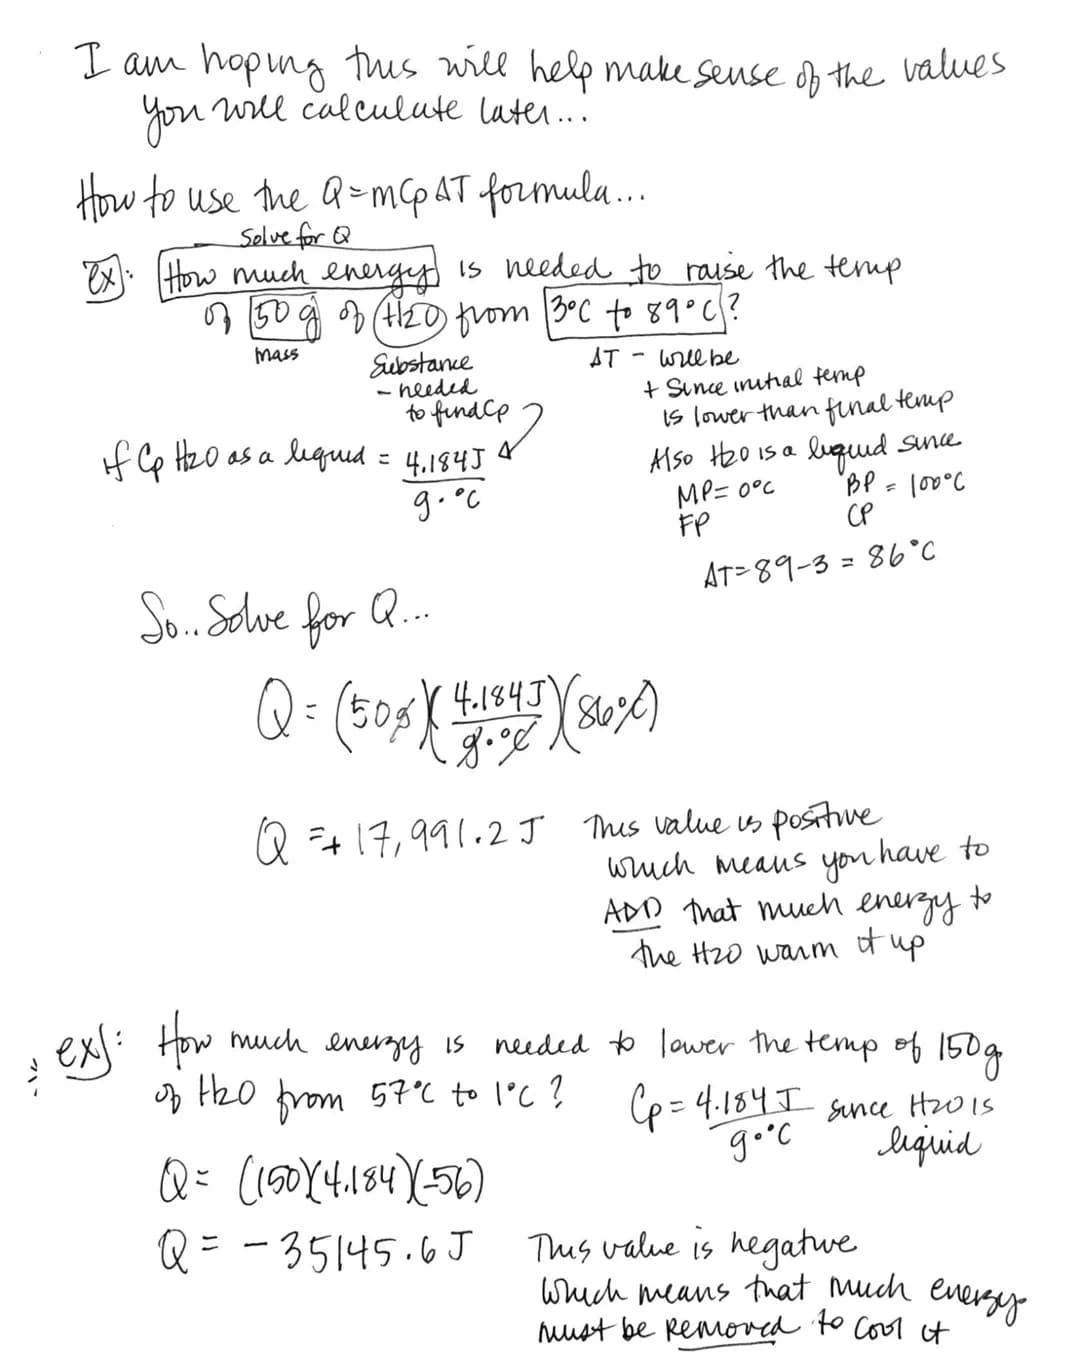 I am hoping this will help make sense of the values
you will calculate later...
How to use the Q=mCpΔT formula...
Solve for Q
ex): How much energy is needed to raise the temp
of 50 g of H2O from 3°C to 89°C?
mass
Substance
- needed
to find Cp
ΔT - will be
+ Since initial temp
is lower than final temp
Also H2O is a liquid since
MP= 0°C BP = 100°C
FP CP
ΔT=89-3 = 86°C
if Cp H2O as a liquid = 4.184J
g·°C
So.. Solve for Q...
Q = (50g)(4.184J/g·°C)(86°C)
Q =+ 17,991.2 J This value is positive
which means you have to
ADD that much energy to
the H2O warm it up
ex): How much energy is needed to lower the temp of 150g
of H2O from 57°C to 1°C?
Cp = 4.184 J since H2O is
g·°C liquid
Q = (150)(4.184)(-56)
Q = -35145.6 J This value is negative
which means that much energy
must be removed to cool it